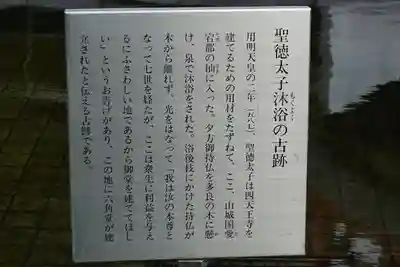 聖徳太子沐浴の古跡
もくよく
用明天皇の二年(五八七)、聖徳太子は四天王寺を
建てるための用材をたずねて、ここ、山城国愛
宕郡の杣に入った。夕方御持仏を多良の木に懸
け、泉で沐浴をされた。浴後枝にかけた持仏が
木から離れず、光をはなって「我は汝の本尊と
なって七世を経たが、ここは衆生に利益を与え
るにふさわしい地であるから御堂を建ててほし
い」というお告げがあり、この地に六角堂が建
立されたと伝える古跡である。